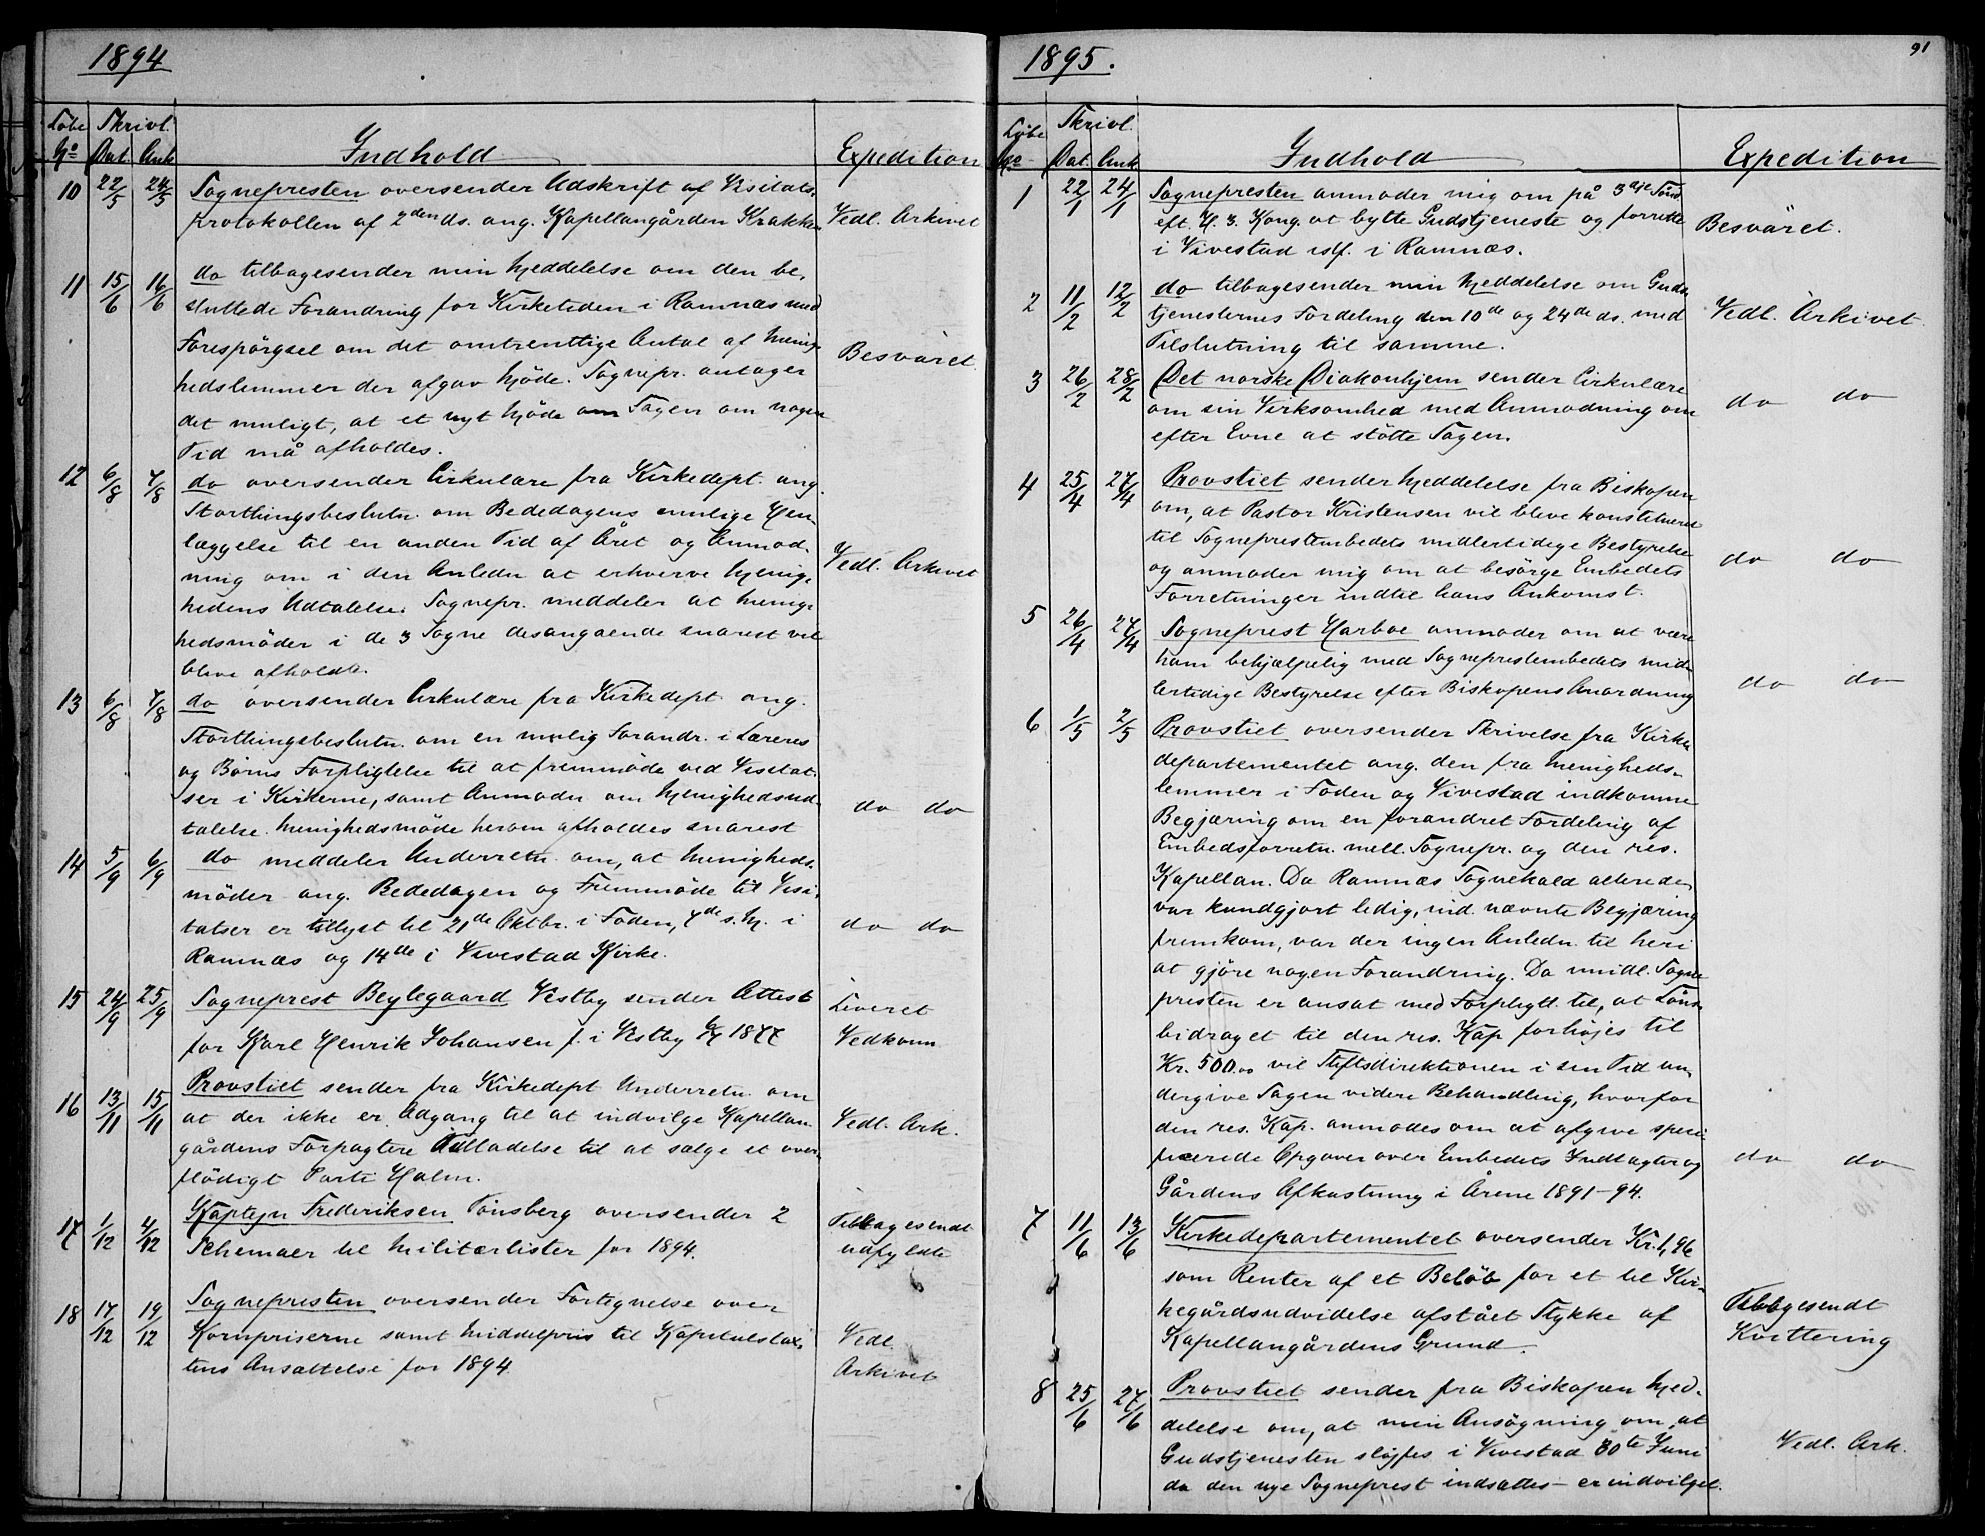 1894
Løbe Skrivl.
No Dat. Ank. Indhold Expedition
10 22/5 24/5 Sognepresten oversender Udskrift af Visitats-
protokollen af 2den ds. ang. Kapellangården Krakken Vedl. Arkivet
11 15/6 16/6 do tilbagesender min Meddelelse om den be-
sluttede Forandring for Kirketiden i Ramnæs med
Forespörgsel om det omtrenttige Antal af Menig-
hedslemmer der afgav Möde. Sognepr. antager Besvaret
det muligt, at et nyt Möde om Sagen om nogen
Tid må afholdes.
12 6/8 7/8 do oversender Cirkulære fra Kirkedept. ang.
Storthingsbeslutn. om Bededagens mulige Hen-
læggelse til en anden Tid af Året og Anmod-
ning om i den Anledn at erhverve Menig- Vedl. Arkivet
hedens Udtalelse. Sognepr. meddeler at Menig-
hedsmöder i de 3 Sogne desangaaende snarest vil
blive afholdt.
13 6/8 7/8 do oversender Cirkulære fra Kirkedept ang.
Storthingsbeslutn. om en mulig Forandr. i Læreres
og Börns Forpligtelse til at fremmöde ved Visitat-
ser i Kirkerne, samt Anmodn om Menighedsud- do do
talelse. Menighedsmöde herom afholdes snarest
14 5/9 6/9 do meddeler Underretn om, at Menigheds-
möder ang. Bededagen og Fremmöde til Visi-
tatser er tillyst til 21de Oktbr. i Foden, 7de s. M. i do do
Ramnæs og 14de i Vivestad Kirke.
15 24/9 25/9 Sogneprest Beylegaard Vestby sender Attest Leveret
for Karl Henrik Johansen f. i Vestby 1877 Vedkomm
16 13/11 15/11 Provstiet sender fra Kirkedept Underretn om
at der ikke er Adgang til at indvilge Kapellan- Vedl. Ark.
gårdens Forpagtere Tilladelse til at sælge et over-
flödigt Parti Halm.
17 1/12 4/12 Kaptejn Frederiksen Tönsberg oversender 2 Tilbagesendt
Schemaer til Militærlister for 1894. udfyldte
18 17/12 19/12 Sognepresten oversender Fortegnelse over
Kornpriserne samt Middelpris til Kapitulstax- Vedl.
tens Ansættelse for 1894. Arkivet
1895. 91
Løbe Skrivl.
No Dat. Ank. Indhold Expedition
1 22/1 24/1 Sognepresten anmoder mig om på 3dje Sönd.
eft. H. 3. Kong. at bytte Gudstjeneste og forrette Besvaret.
i Vivestad istf. i Ramnæs.
2 11/2 12/2 do tilbagesender min Meddelelse om Guds-
tjenesternes Fordeling den 10de og 24de ds. med Vedl. Arkivet
Tilslutning til samme.
3 26/2 28/2 Det norske Diakonhjem sender Cirkulære
om sin Virksomhed med Anmodning om do do
efter Evne at stötte Sagen.
4 25/4 27/4 Provstiet sender Meddelelse fra Biskopen
om, at Pastor Kristensen vil blive konstitueret
til Sogneprestembedets midlertidige Bestyrelse do do
og anmoder mig om at besörge Embedets
Forretninger indtil hans Ankomst.
5 26/4 27/4 Sogneprest Harboe anmoder om at være
ham behjælpelig med Sogneprestembedets mid-
lertidige Bestyrelse efter Biskopens Anordning do do
6 1/5 2/5 Provstiet oversender Skrivelse fra Kirke-
departementet ang. den fra Menigheds-
lemmer i Foden og Vivestad indkomne
Begjæring om en forandret Fordeling af
Embedsforretn. mell. Sognepr. og den res.
Kapellan. Da Ramnæs Sognekald allerede
var kundgjort ledig, ind. nævnte Begjæring
fremkom, var der ingen Anledn. til heri
at gjöre nogen Forandring. Da midl. Sogne-
presten er ansat med Forpligtl. til, at Löns-
bidraget til den res. Kap forhöjes til
Kr. 500.00 vil Stiftsdirektionen i sin Tid un-
dergive Sagen videre Behandling, hvorfor
den res. Kap. anmodes om at afgive speci-
ficerede Opgaver over Embedets Indtægter og do do
Gårdens Afkastning i Årene 1891–94.
7 11/6 13/6 Kirkedepartementet oversender Kr. 1,96
som Renter af et Belöb for et til Kir-
kegårdsudvidelse afstået Stykke af Tilbagesendt
Kapellangårdens Grund. Kvittering
8 25/6 27/6 Provstiet sender fra Biskopen Med-
delelse om, at min Ansögning om at
Gudstjenesten slöjfes i Vivestad 30te Juni Vedl. Ark.
da den nye Sogneprest indsættes – er indvilget.